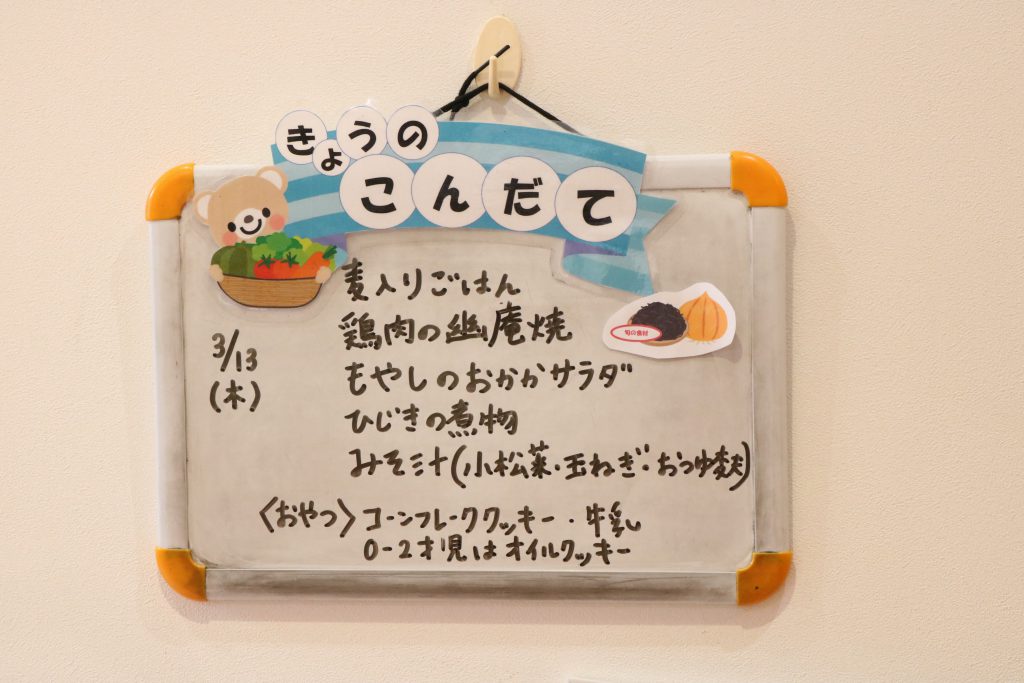 きょうの
こんだて
麦入りごはん
鶏肉の幽庵焼
旬の食材
3/13
(木)
もやしのおかかサラダ
ひじきの煮物
みそ汁(小松菜・玉ねぎ・おつゆ麩)
〈おやつ〉コーンフレーククッキー・牛乳
0-2才児はオイルクッキー